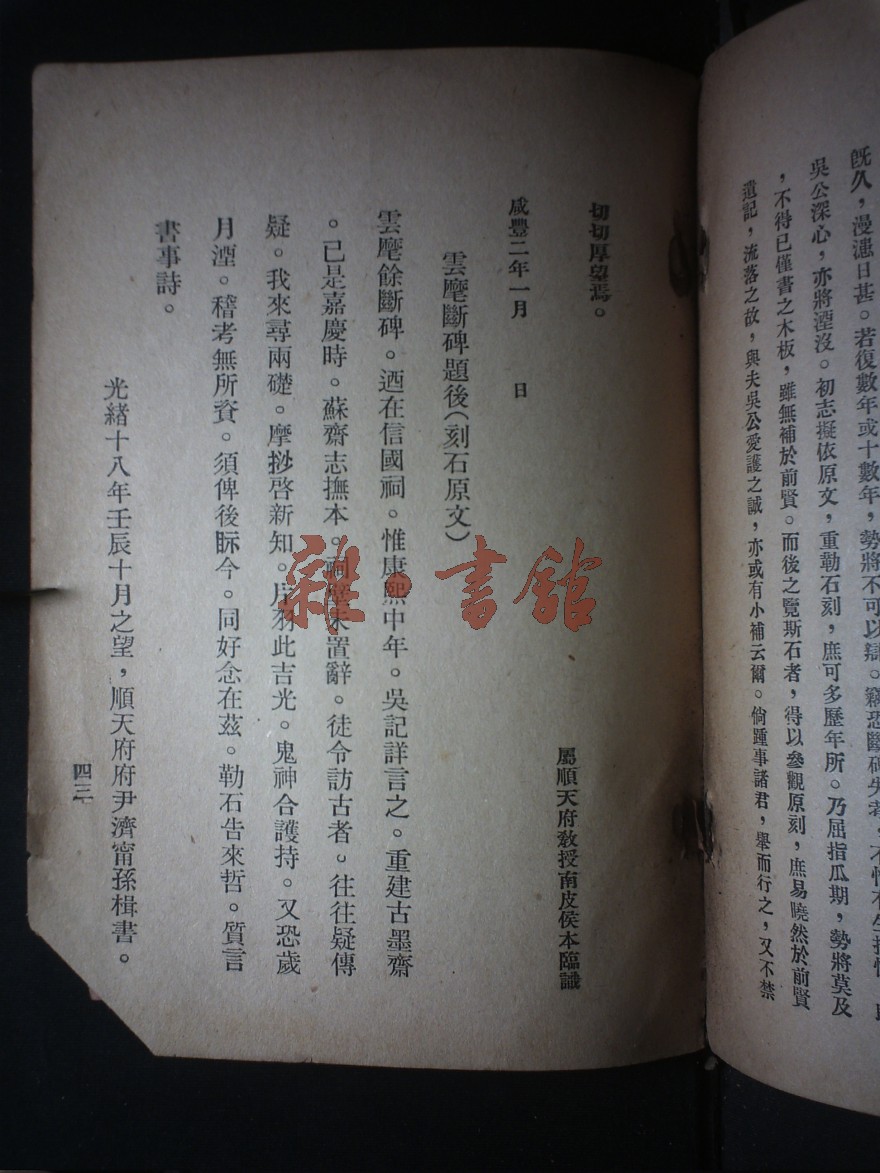 既久，漫漶日甚。若復數年或十數年，勢將不可以辯。竊恐斷碑失考，
吳公深心，亦將湮沒。初志擬依原文，重勒石刻，庶可多歷年所。乃屈指瓜期，勢將莫及
，不得已僅書之木板，雖無補於前賢。而後之覽斯石者，得以參觀原刻，庶易曉然於前賢
遺記，流落之故，與夫吳公愛護之誠，亦或有小補云爾。倘踵事諸君，舉而行之，又不禁
切切厚望焉。
屬順天府教授南皮侯本臨識
咸豐二年一月　日
雲麾斷碑題後（刻石原文）
雲麾餘斷碑。迺在信國祠。惟康熙中年。吳記詳言之。重建古墨齋
。已是嘉慶時。蘇齋志撫本。祠壁未置辭。徒令訪古者。往往疑傳
疑。我來尋兩礎。摩挲啓新知。片羽此吉光。鬼神合護持。又恐歲
月湮。稽考無所資。須俾後眎今。同好念在茲。勒石告來哲。質言
書事詩。
光緒十八年壬辰十月之望，順天府府尹濟甯孫楫書。
四三
雜·書館